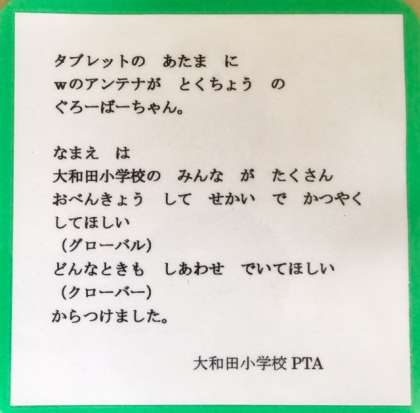 タブレットの　あたま　に
wのアンテナが　とくちょう　の
ぐろーばーちゃん。
なまえ　は
大和田小学校の　みんな　が　たくさん
おべんきょう　して　せかい　で　かつやく
してほしい
（グローバル）
どんなときも　しあわせ　でいてほしい
（クローバー）
からつけました。
大和田小学校 PTA